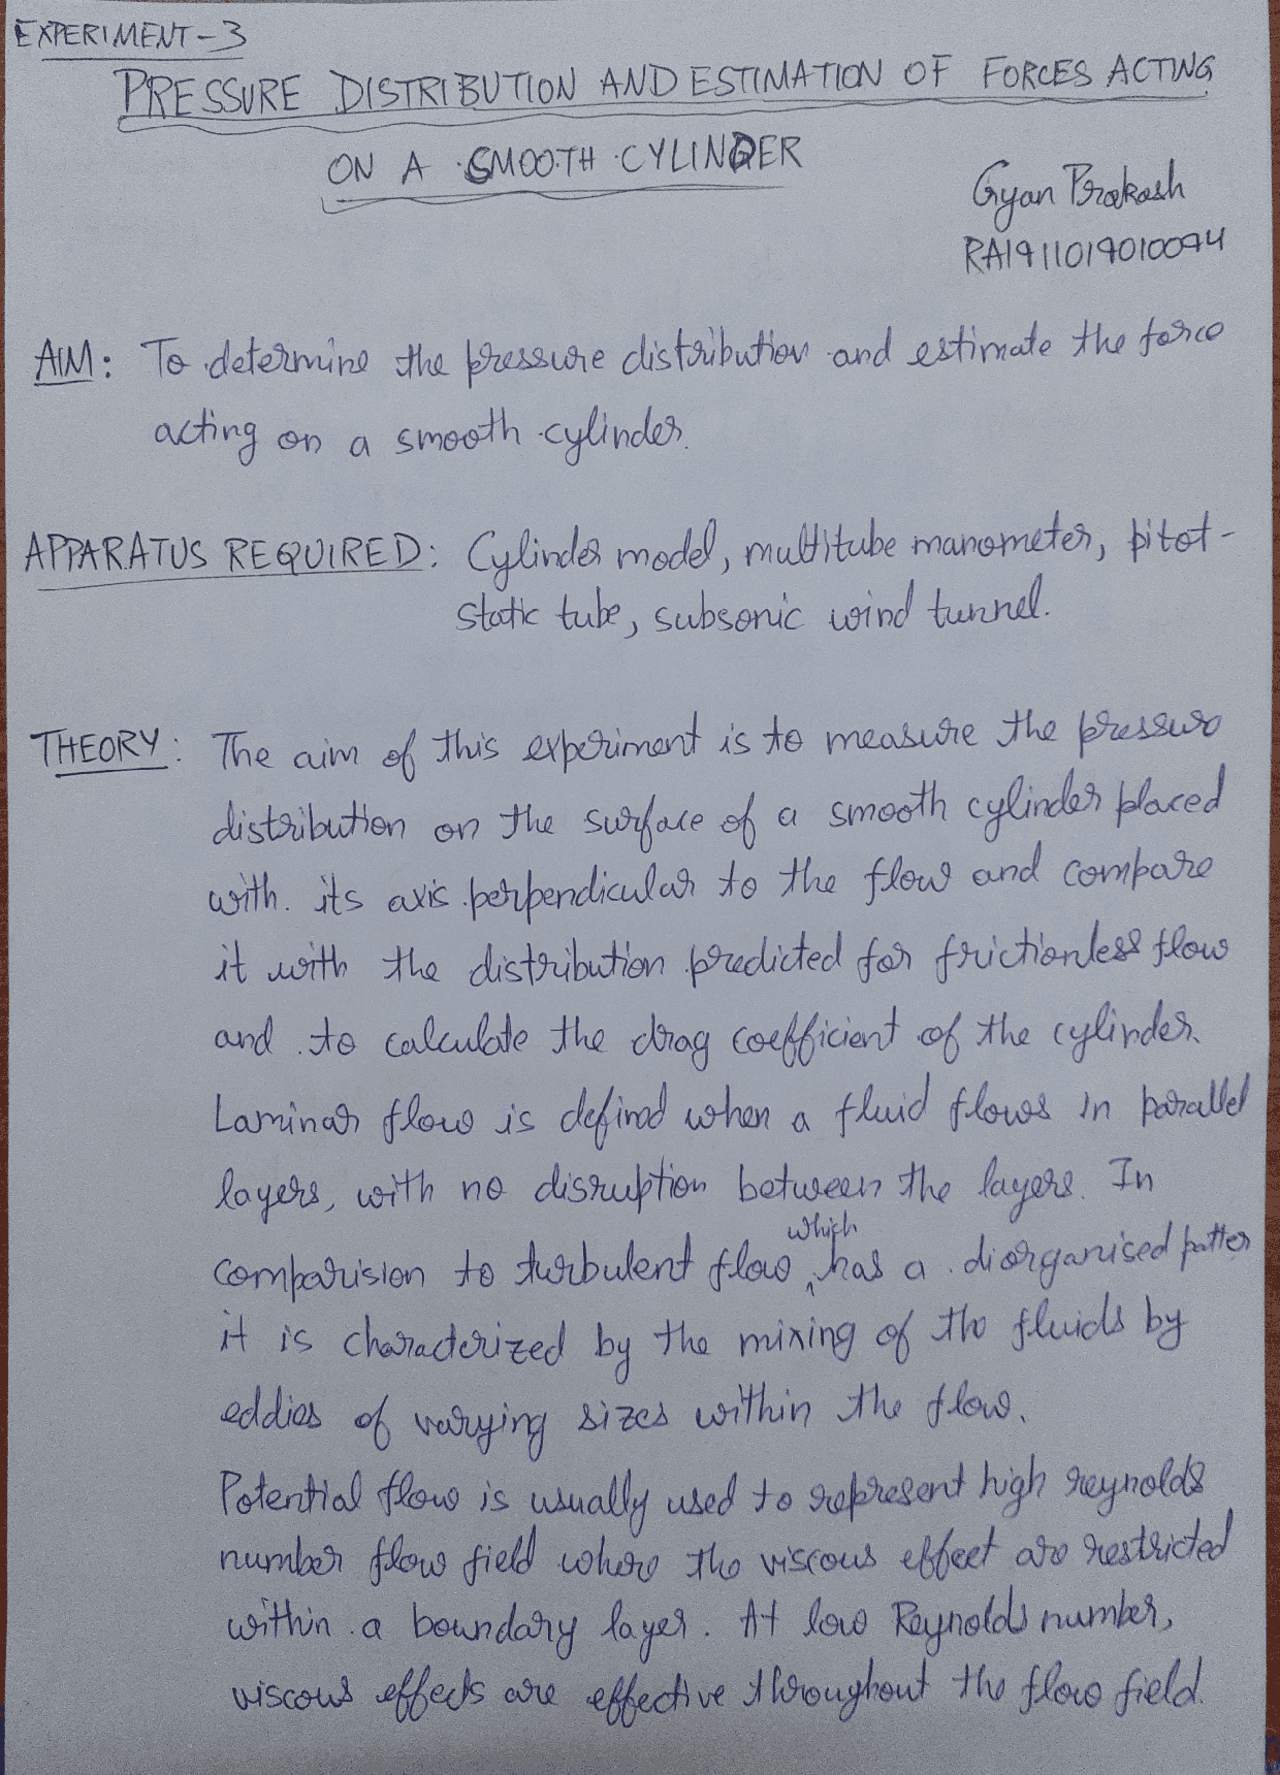 EXPERIMENT-3
PRESSURE DISTRIBUTION AND ESTIMATION OF FORCES ACTING
ON A SMOOTH CYLINDER
Gyan Prakash
RA1911019010094
AIM: To determine the pressure distribution and estimate the force
acting on a smooth cylinder.
APPARATUS REQUIRED: Cylinder model, multitube manometer, pitot-
static tube, subsonic wind tunnel.
THEORY: The aim of this experiment is to measure the pressure
distribution on the surface of a smooth cylinder placed
with its axis perpendicular to the flow and compare
it with the distribution predicted for frictionless flow
and to calculate the drag coefficient of the cylinder.
Laminar flow is defined when a fluid flows in parallel
layers, with no disruption between the layers. In
comparision to turbulent flow which has a diorganised patter
it is characterized by the mixing of the fluids by
eddies of varying sizes within the flow.
Potential flow is usually used to represent high reynolds
number flow field where the viscous effect are restricted
within a boundary layer. At low Reynolds number,
viscous effects are effective throughout the flow field.